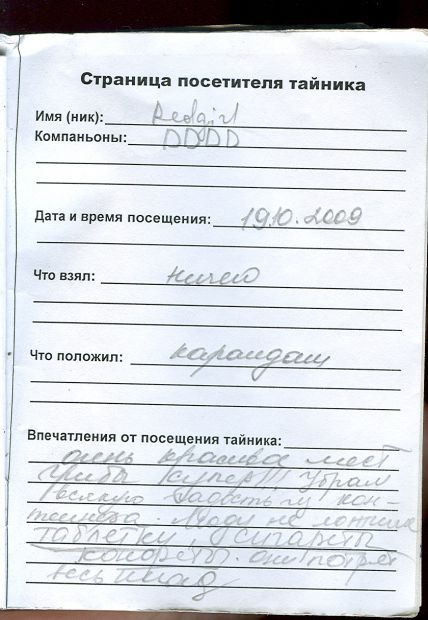 Страница посетителя тайника
Имя (ник): Redgirl
Компаньоны: DDDD
Дата и время посещения: 19.10.2009
Что взял: ничего
Что положил: карандаш
Впечатления от посещения тайника:
очень красивое мест
грибы супер!!! Убрал
всякую гадость из кон-
Люди не ложите
таблетки, сигареты
конфеты. они портят